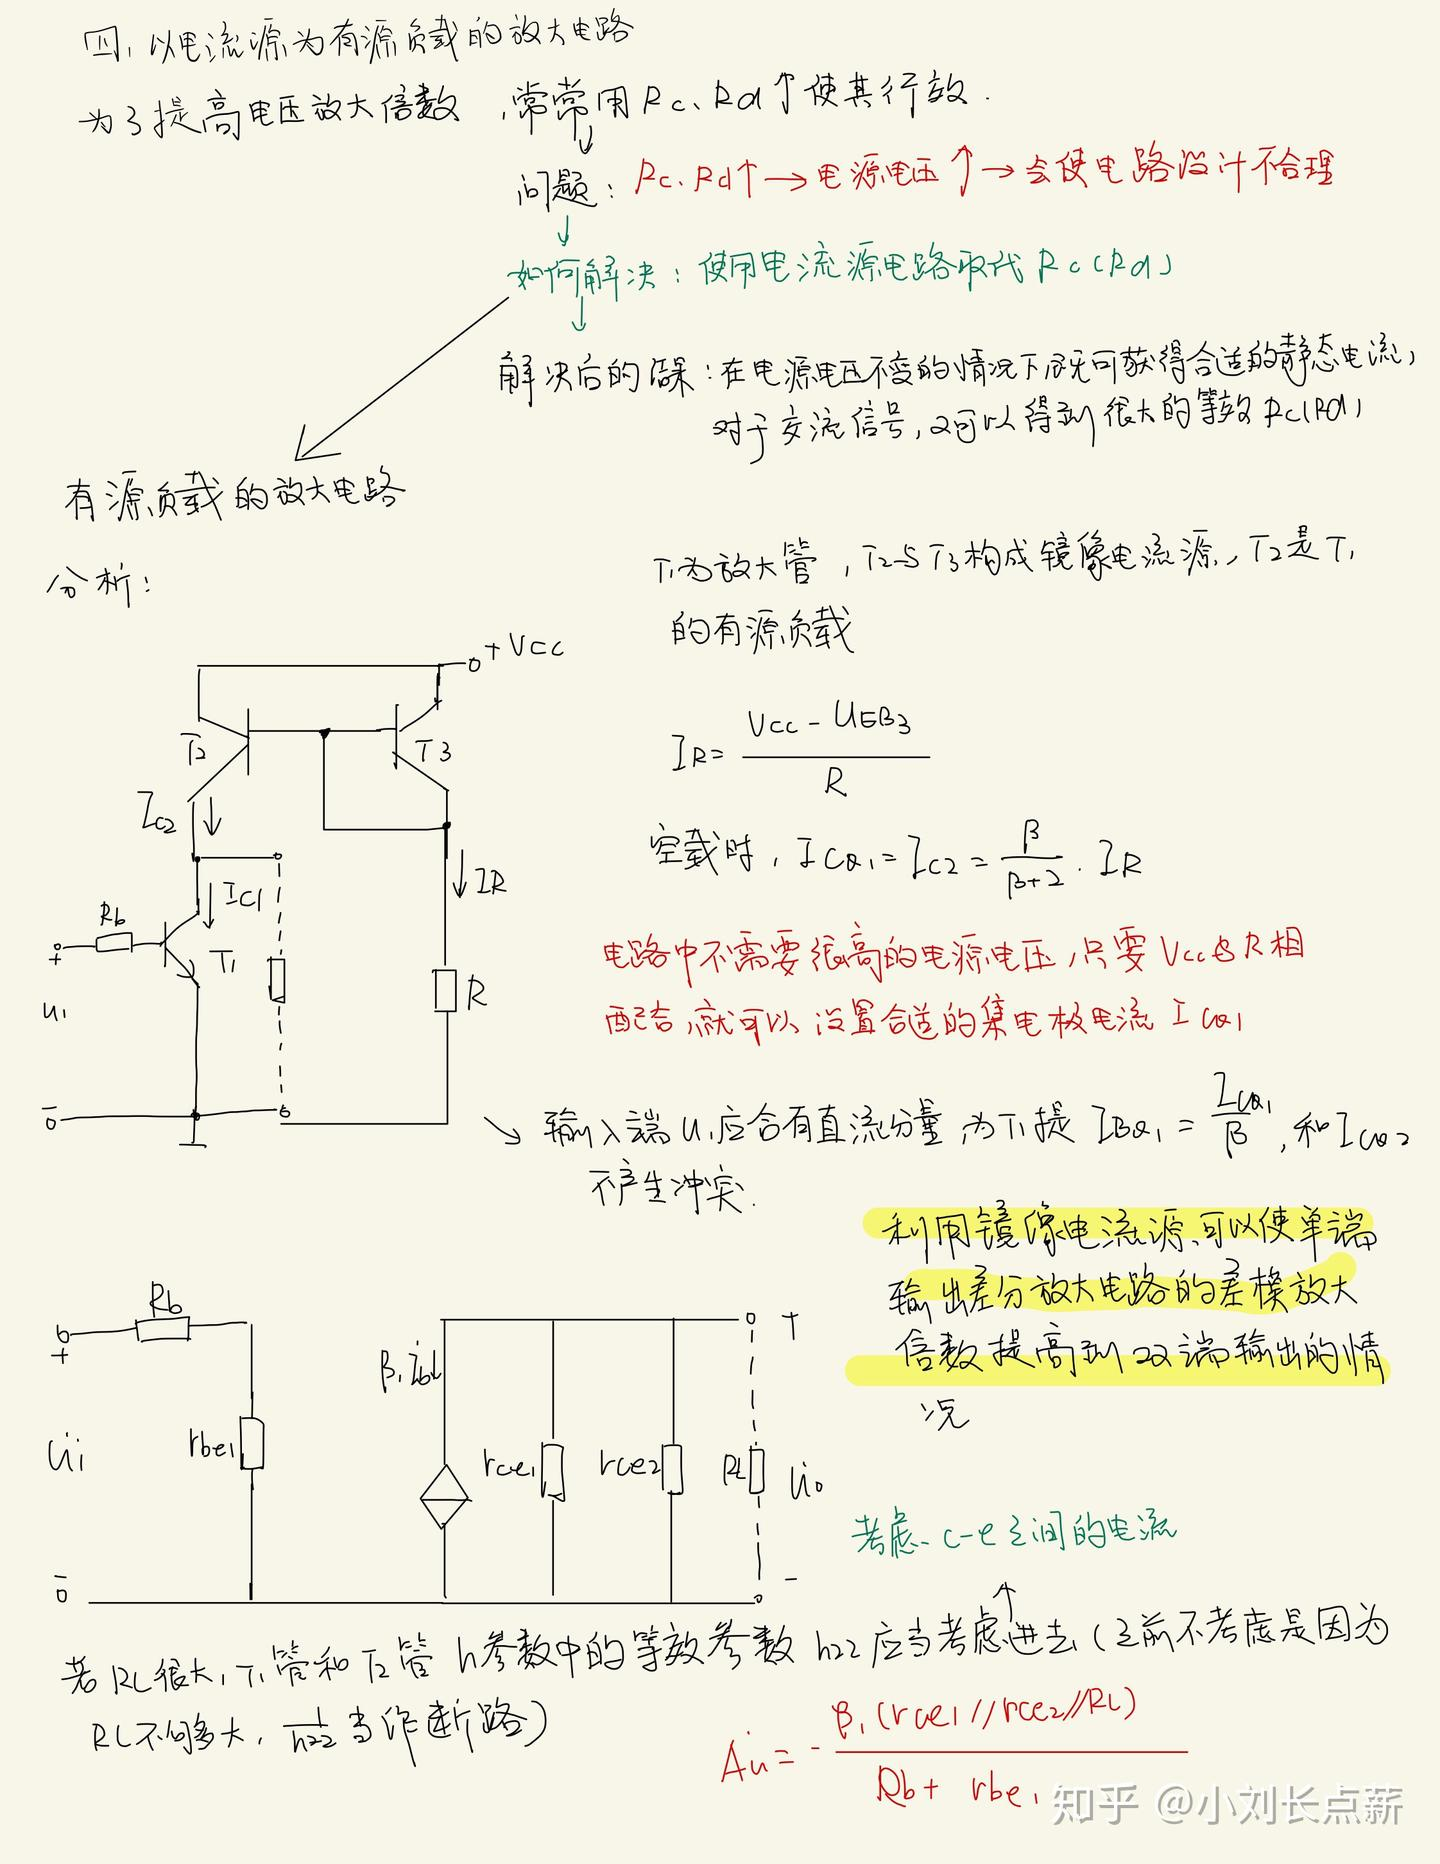 四、以电流源为有源负载的放大电路
为了提高电压放大倍数，常常用Rc、Rd↑使其行效.
↓
问题：Rc、Rd↑→电源电压↑→会使电路设计不合理
↓
如何解决：使用电流源电路取代Rc(Rd)
↓
解决后的效果：在电源电压不变的情况下,既可获得合适的静态电流,
对于交流信号,又可以得到很大的等效Rc(Rd)
有源负载的放大电路
分析：
T1为放大管，T2与T3构成镜像电流源，T2是T1
的有源负载
+Vcc
T2
T3
IR= (Vcc-UEB3)/R
IC2
空载时，ICQ1=IC2=β/(β+2)·IR
IC1
IR
Rb
+
T1
R
u1
-
电路中不需要很高的电源电压,只要Vcc与R相
配合,就可以设置合适的集电极电流ICQ1
输入端u1应含有直流分量,为T1提IBQ1=ICQ1/β,和ICQ2
不产生冲突.
利用镜像电流源,可以使单端
输出差分放大电路的差模放大
倍数提高到双端输出的情
况
Rb
+
u̇i
-
rbe1
β1İb↓
rce1
rce2
RL
+
u̇o
-
考虑c-e之间的电流
↑
若RL很大,T1管和T2管h参数中的等效参数h22应当考虑进去(之前不考虑是因为
RL不够大，1/h22当作断路)
Ȧu=-β1(rce1//rce2//RL)/(Rb+rbe1
知乎 @小刘长点薪